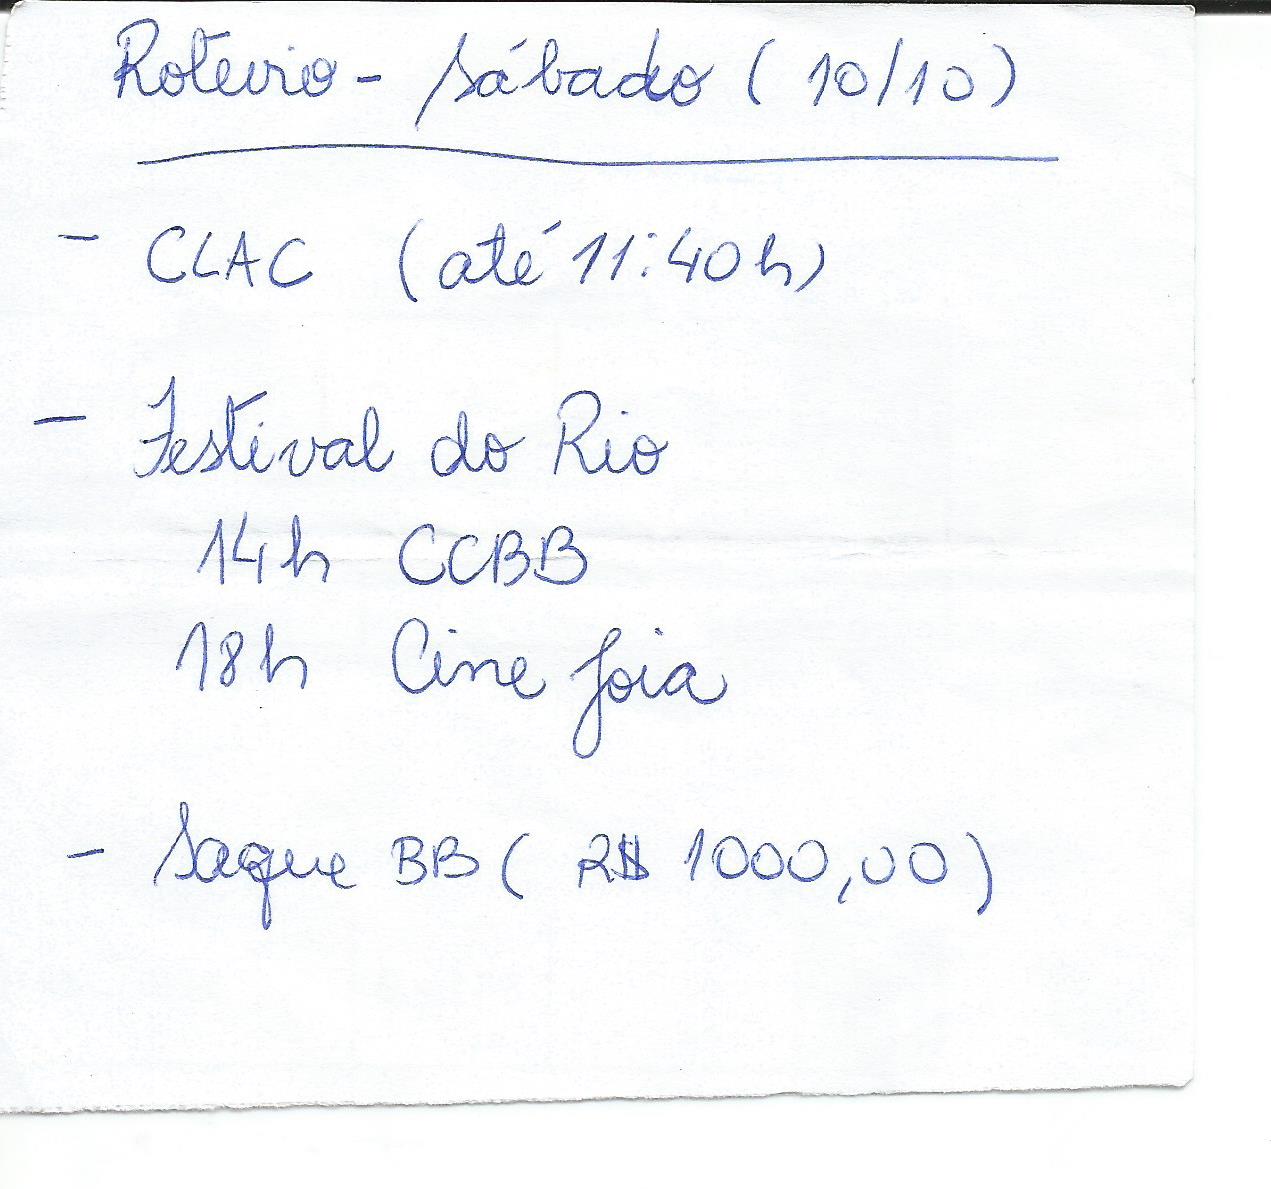 Roteiro - sábado (10/10)
- CLAC (até 11:40h)
- Festival do Rio
14h CCBB
18h Cine Joia
- Saque BB (R$ 1000,00)